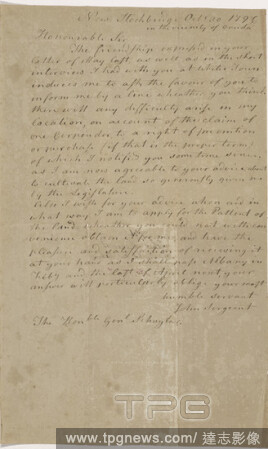 New Stockbridge Oct. 20 1796
in the vicinity of Oneida
Honourable Sir
The friendship expressed in your
letter of May last, as well as in the short
interview I had with you at White's town
induces me to ask the favour of you to
inform me by a line whether you think
there will any difficulty arise in my
location, on account of the claim of
one to a right of preemtion
or purchase (if that is the proper term)
of which I notified you some time since,
as I am now agreeable to your advice about
to cultivate the land so generously given me
by the Legislature.
Also I wish for your advice when and in
what way I am to apply for the Pattent of
the land, whether you could not with con
venience obtain it for me, and have the
pleasure and satisfaction of receiving it
at your hand as I shall pass Albany in
Feby and the last of next, your
answer will particularly oblige your most
humble servant
John Sergeant
The Honble Genl. Schuyler
TPG
www.tpgnews.com/達志影像